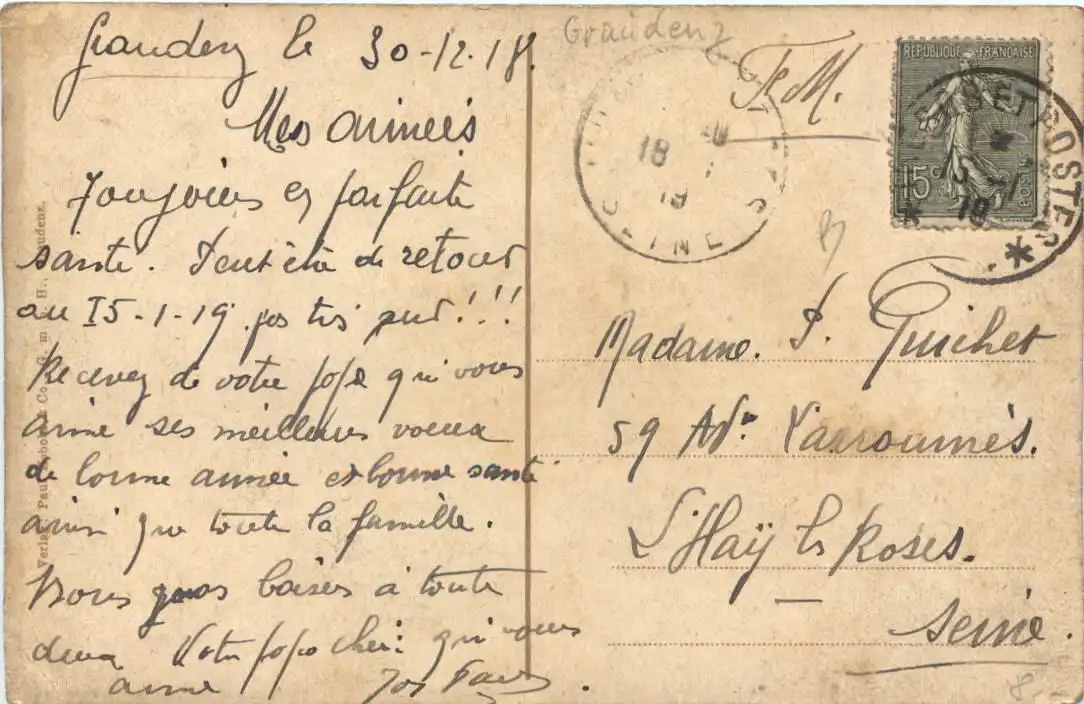 Graudenz le 30-12-18.
Mes aimées
Toujours en parfaite
santé. Peut être de retour
au 15-1-19. pas très sur!!!
Recevez de votre papa qui vous
aime ses meilleurs voeux
de bonne année et bonne santé
ainsi que toute la famille.
Bons gros baises à toute
deux Votre papa cheri qui vous
aime
Verlag: Paul
Co. G. m. b. H., Graudenz.
Graudenz
F. M.
RÉPUBLIQUE FRANÇAISE
15c
POSTES
ET POSTES
19
18
19
SEINE
Madame. P. Guichet
59 Av. Larroumès.
L'Haÿ les Roses.
Seine.
8.-